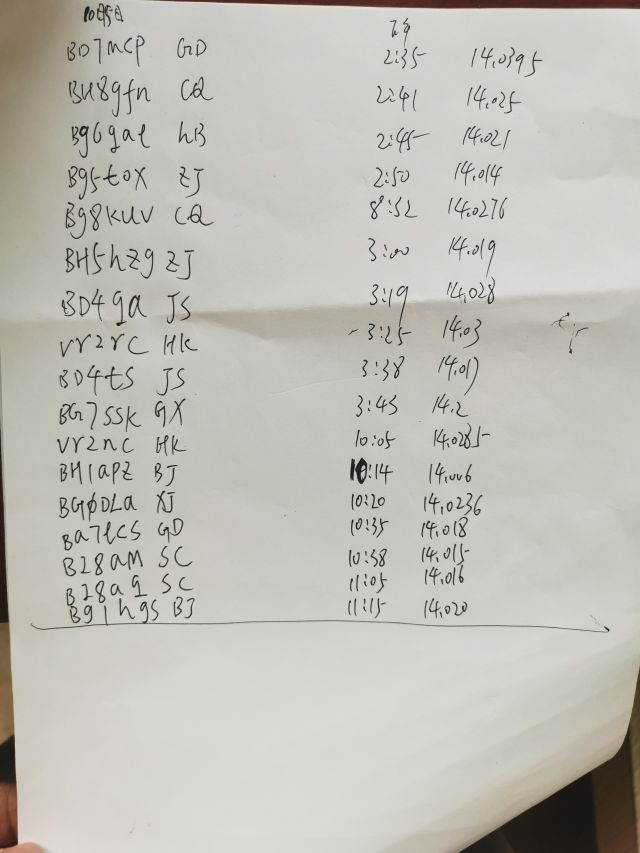 10月5日 下午
BD7MCP GD 2:35 14.0395
BH8gfn CQ 2:41 14.025
Bg6gal hB 2:45 14.021
Bg5tox ZJ 2:50 14.014
Bg8KUV CQ 8:52 14.0276
BH5hzg ZJ 3:00 14.019
BD4ga JS 3:19 14.028
Vr2rc HK 3:25 14.03
BD4ts JS 3:38 14.017
BG7SSK GX 3:45 14.2
Vr2nc HK 10:05 14.0285
BH1apz BJ 10:14 14.006
BGØDLa XJ 10:20 14.0236
Ba7lcs GD 10:35 14.018
BZ8aM SC 10:58 14.015
BZ8aq SC 11:05 14.016
Bg1hgs BJ 11:15 14.020